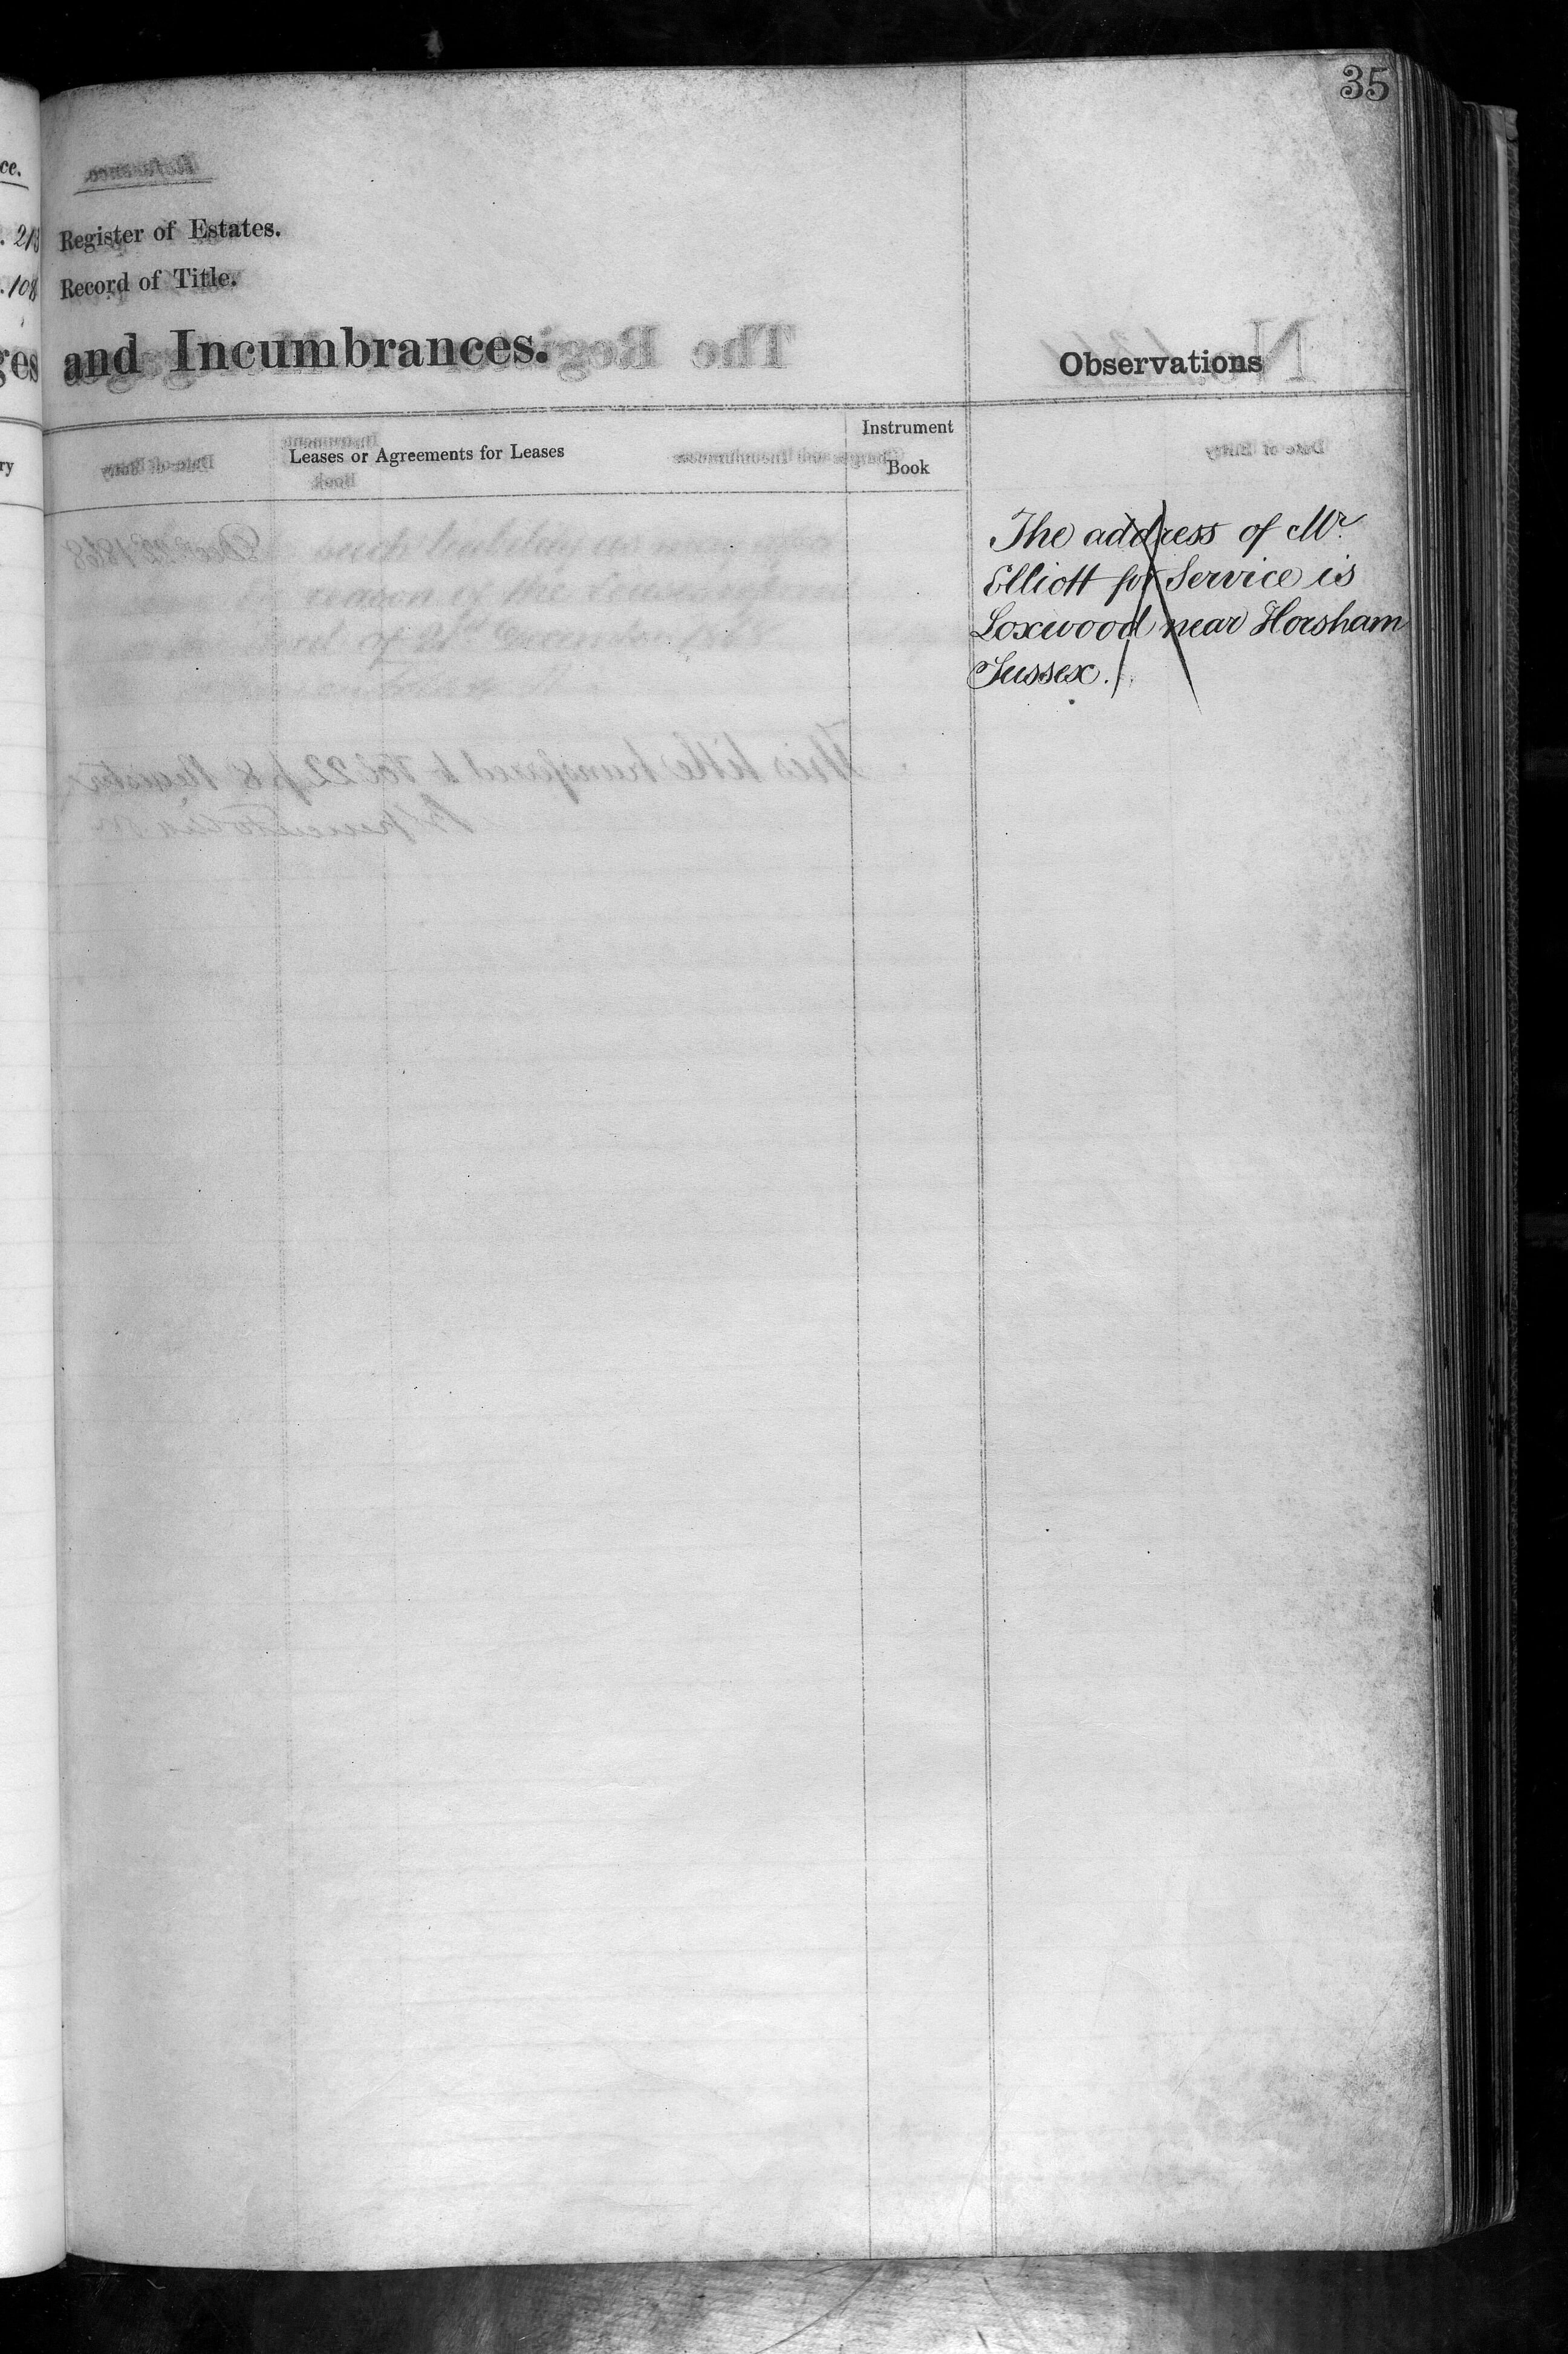 35
ce.
. 213
. 108
ges
ry
Register of Estates.
Record of Title.
and Incumbrances.
Observations
Leases or Agreements for Leases
Instrument
Book
The address of Mr
Elliott for Service is
Loxwood near Horsham
Sussex.